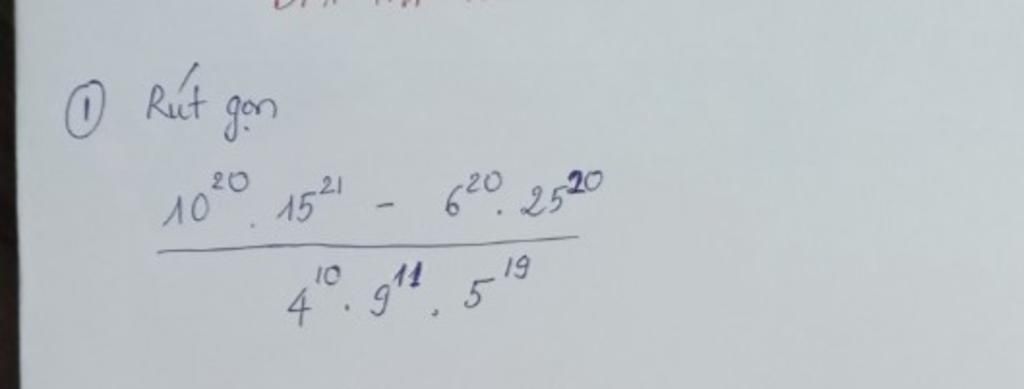 ① Rút gọn
10²⁰ . 15²¹ - 6²⁰ . 25²⁰
4¹⁰ . 9¹¹ . 5¹⁹